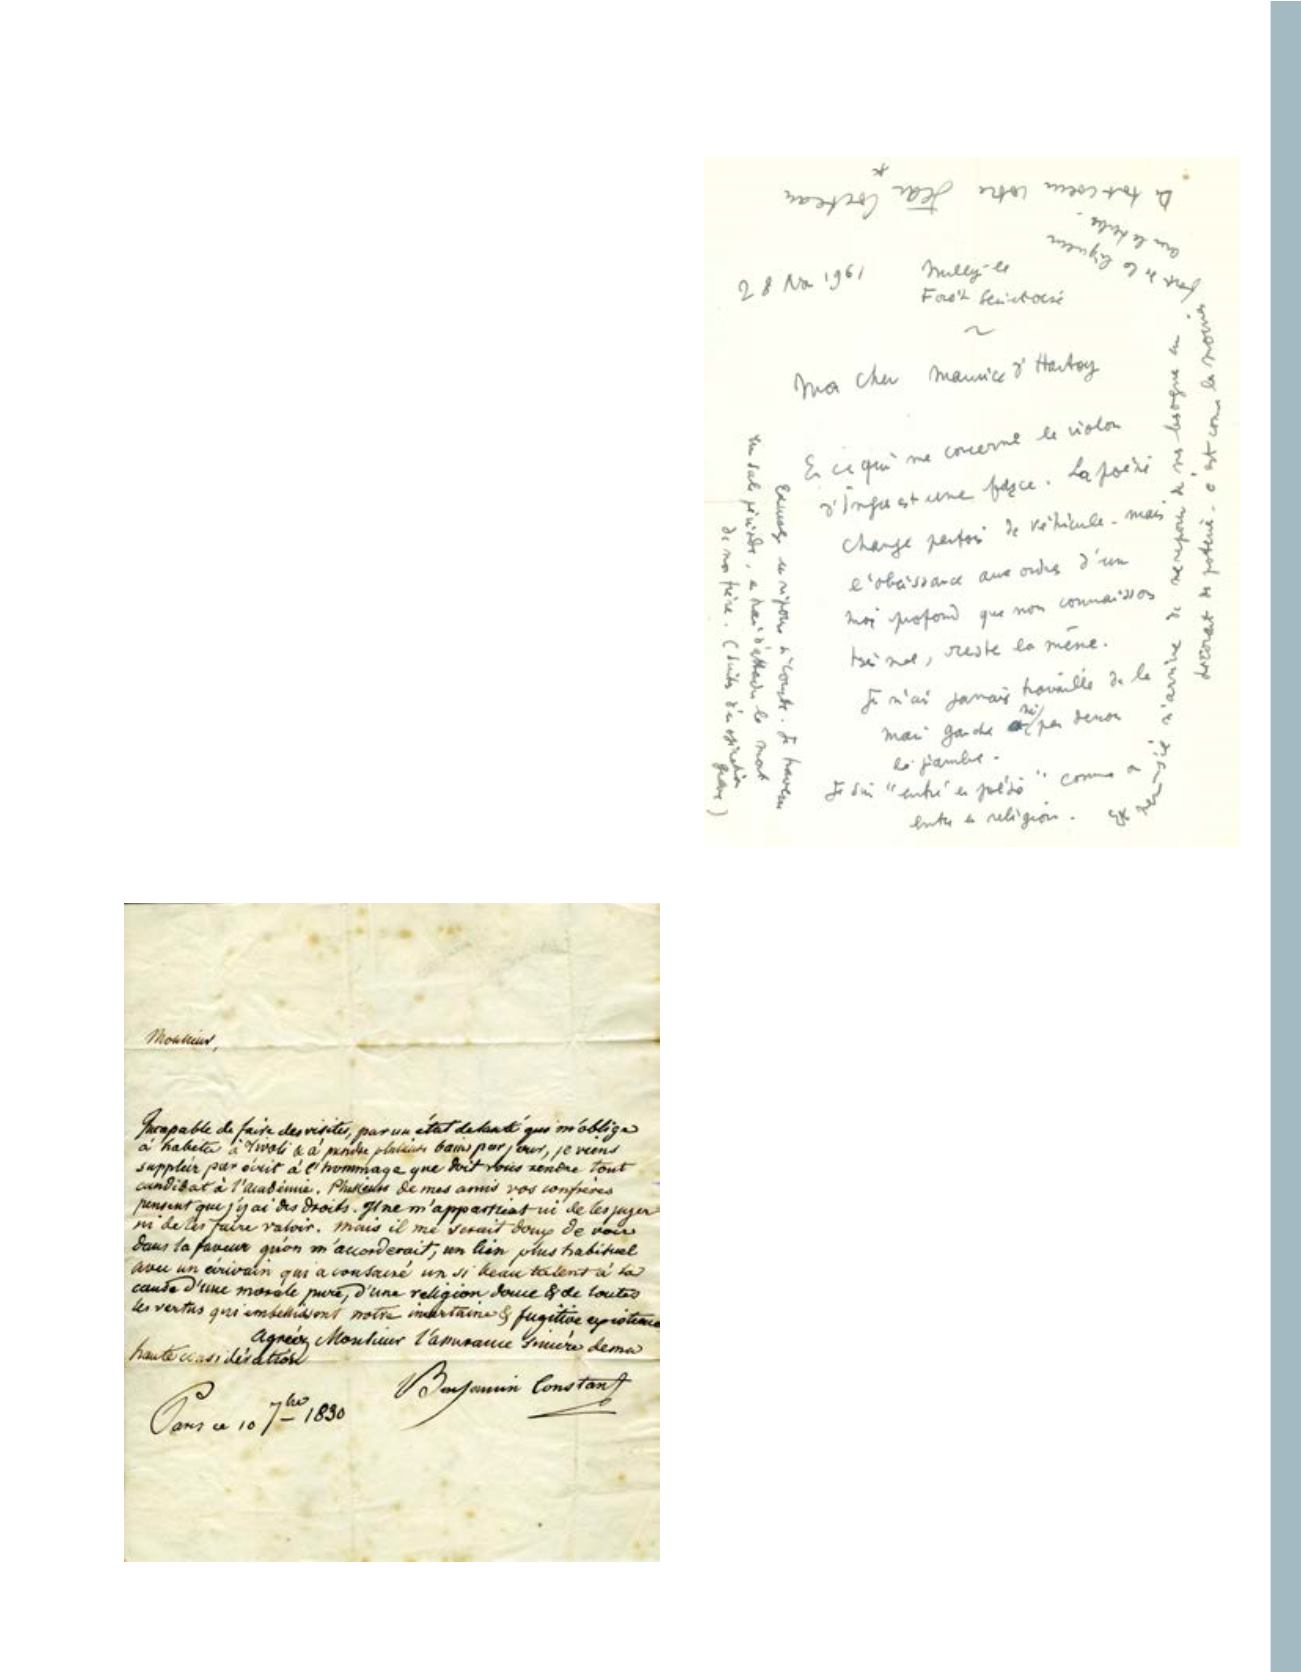 28 Nov 1961
Milly-la
Forêt Seine et Oise
Mon cher Maurice d'Hartoy
En ce qui me concerne le violon
d'Ingres est une farce. La poésie
change parfois de véhicule - mais
l'obéissance aux ordres d'un
moi profond que nous connaissons
très mal, reste la même.
Je n'ai jamais travaillé de la
main gauche ni par dessous
la jambe.
Je suis "entré en poésie" comme on
entre en religion.
n'arrive de me reposer de ma besogne en
décorant des poteries - c'est comme la mauvaise
part de la ligueur
avec le diable -
De tout coeur votre Jean Cocteau
*
Excusez ma réponse si courte. Je traverse
une sale période, en train d'attendre la mort
de mon frère. (suites d'une opération
grave)
Monsieur,
Incapable de faire des visites, par un état de santé qui m'oblige
à habiter à Tivoli & à prendre plusieurs bains par jour, je viens
suppléer par écrit à l'hommage que doit vous rendre tout
candidat à l'académie. Plusieurs de mes amis vos confrères
pensent que j'y ai des droits. Il ne m'appartient ni de les juger
ni de les faire valoir. mais il me serait doux de voir
dans la faveur qu'on m'accorderait, un lien plus habituel
avec un écrivain qui a consacré un si beau talent à la
cause d'une morale pure, d'une religion douce & de toutes
les vertus qui embellissent notre incertaine & fugitive existence
Agréez Monsieur l'assurance sincère de ma
haute considération
Benjamin Constant
Paris ce 10 7bre 1830